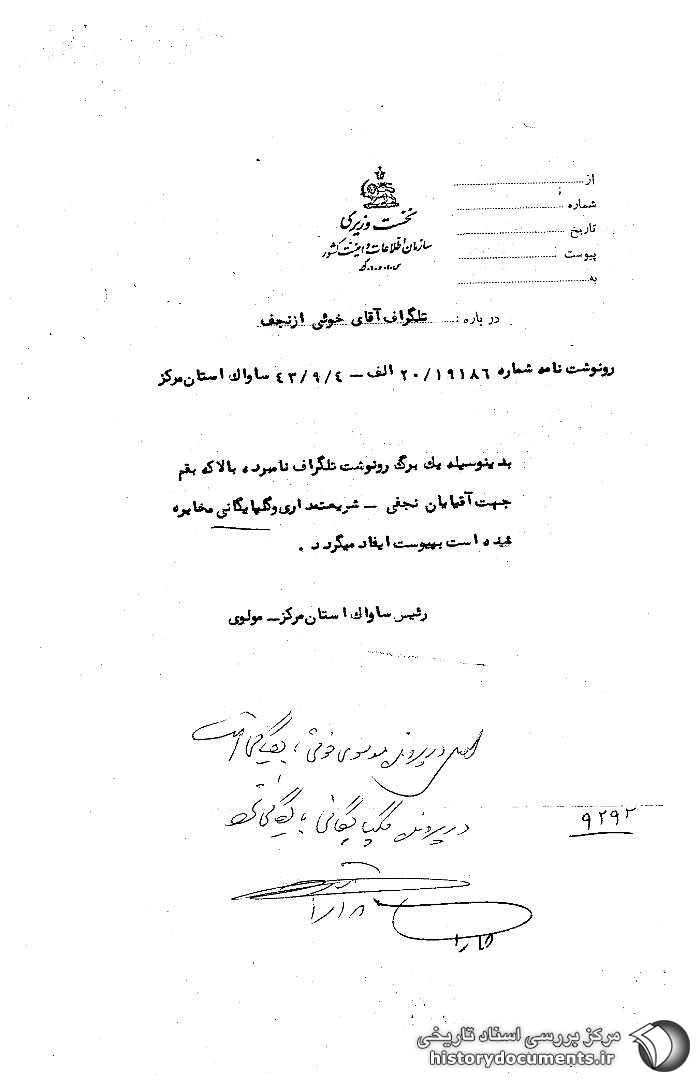 از
شماره
تاریخ
پیوست
به
نخست وزیری
سازمان اطلاعات و امنیت کشور
س.ا.و.ا.ک
درباره : تلگراف آقای خوئی ازنجف
رونوشت نامه شماره ۲۰/۱۹۱۸۶ الف – ۴۳/۹/۴ ساواک استان مرکز
بدینوسیله یک برگ رونوشت تلگراف نامبرده بالا که بقم
جهت آقایان نجفی – شریعتمداری وگلپایگانی مخابره
شده است بپیوست ایفاد میگردد .
رئیس ساواک استان مرکز – مولوی
اصل در پرونده موسوی خوئی بایگانی است
در پرونده گلپایگانی بایگانی شود
۹۲۹۲
مرکز بررسی اسناد تاریخی
historydocuments.ir